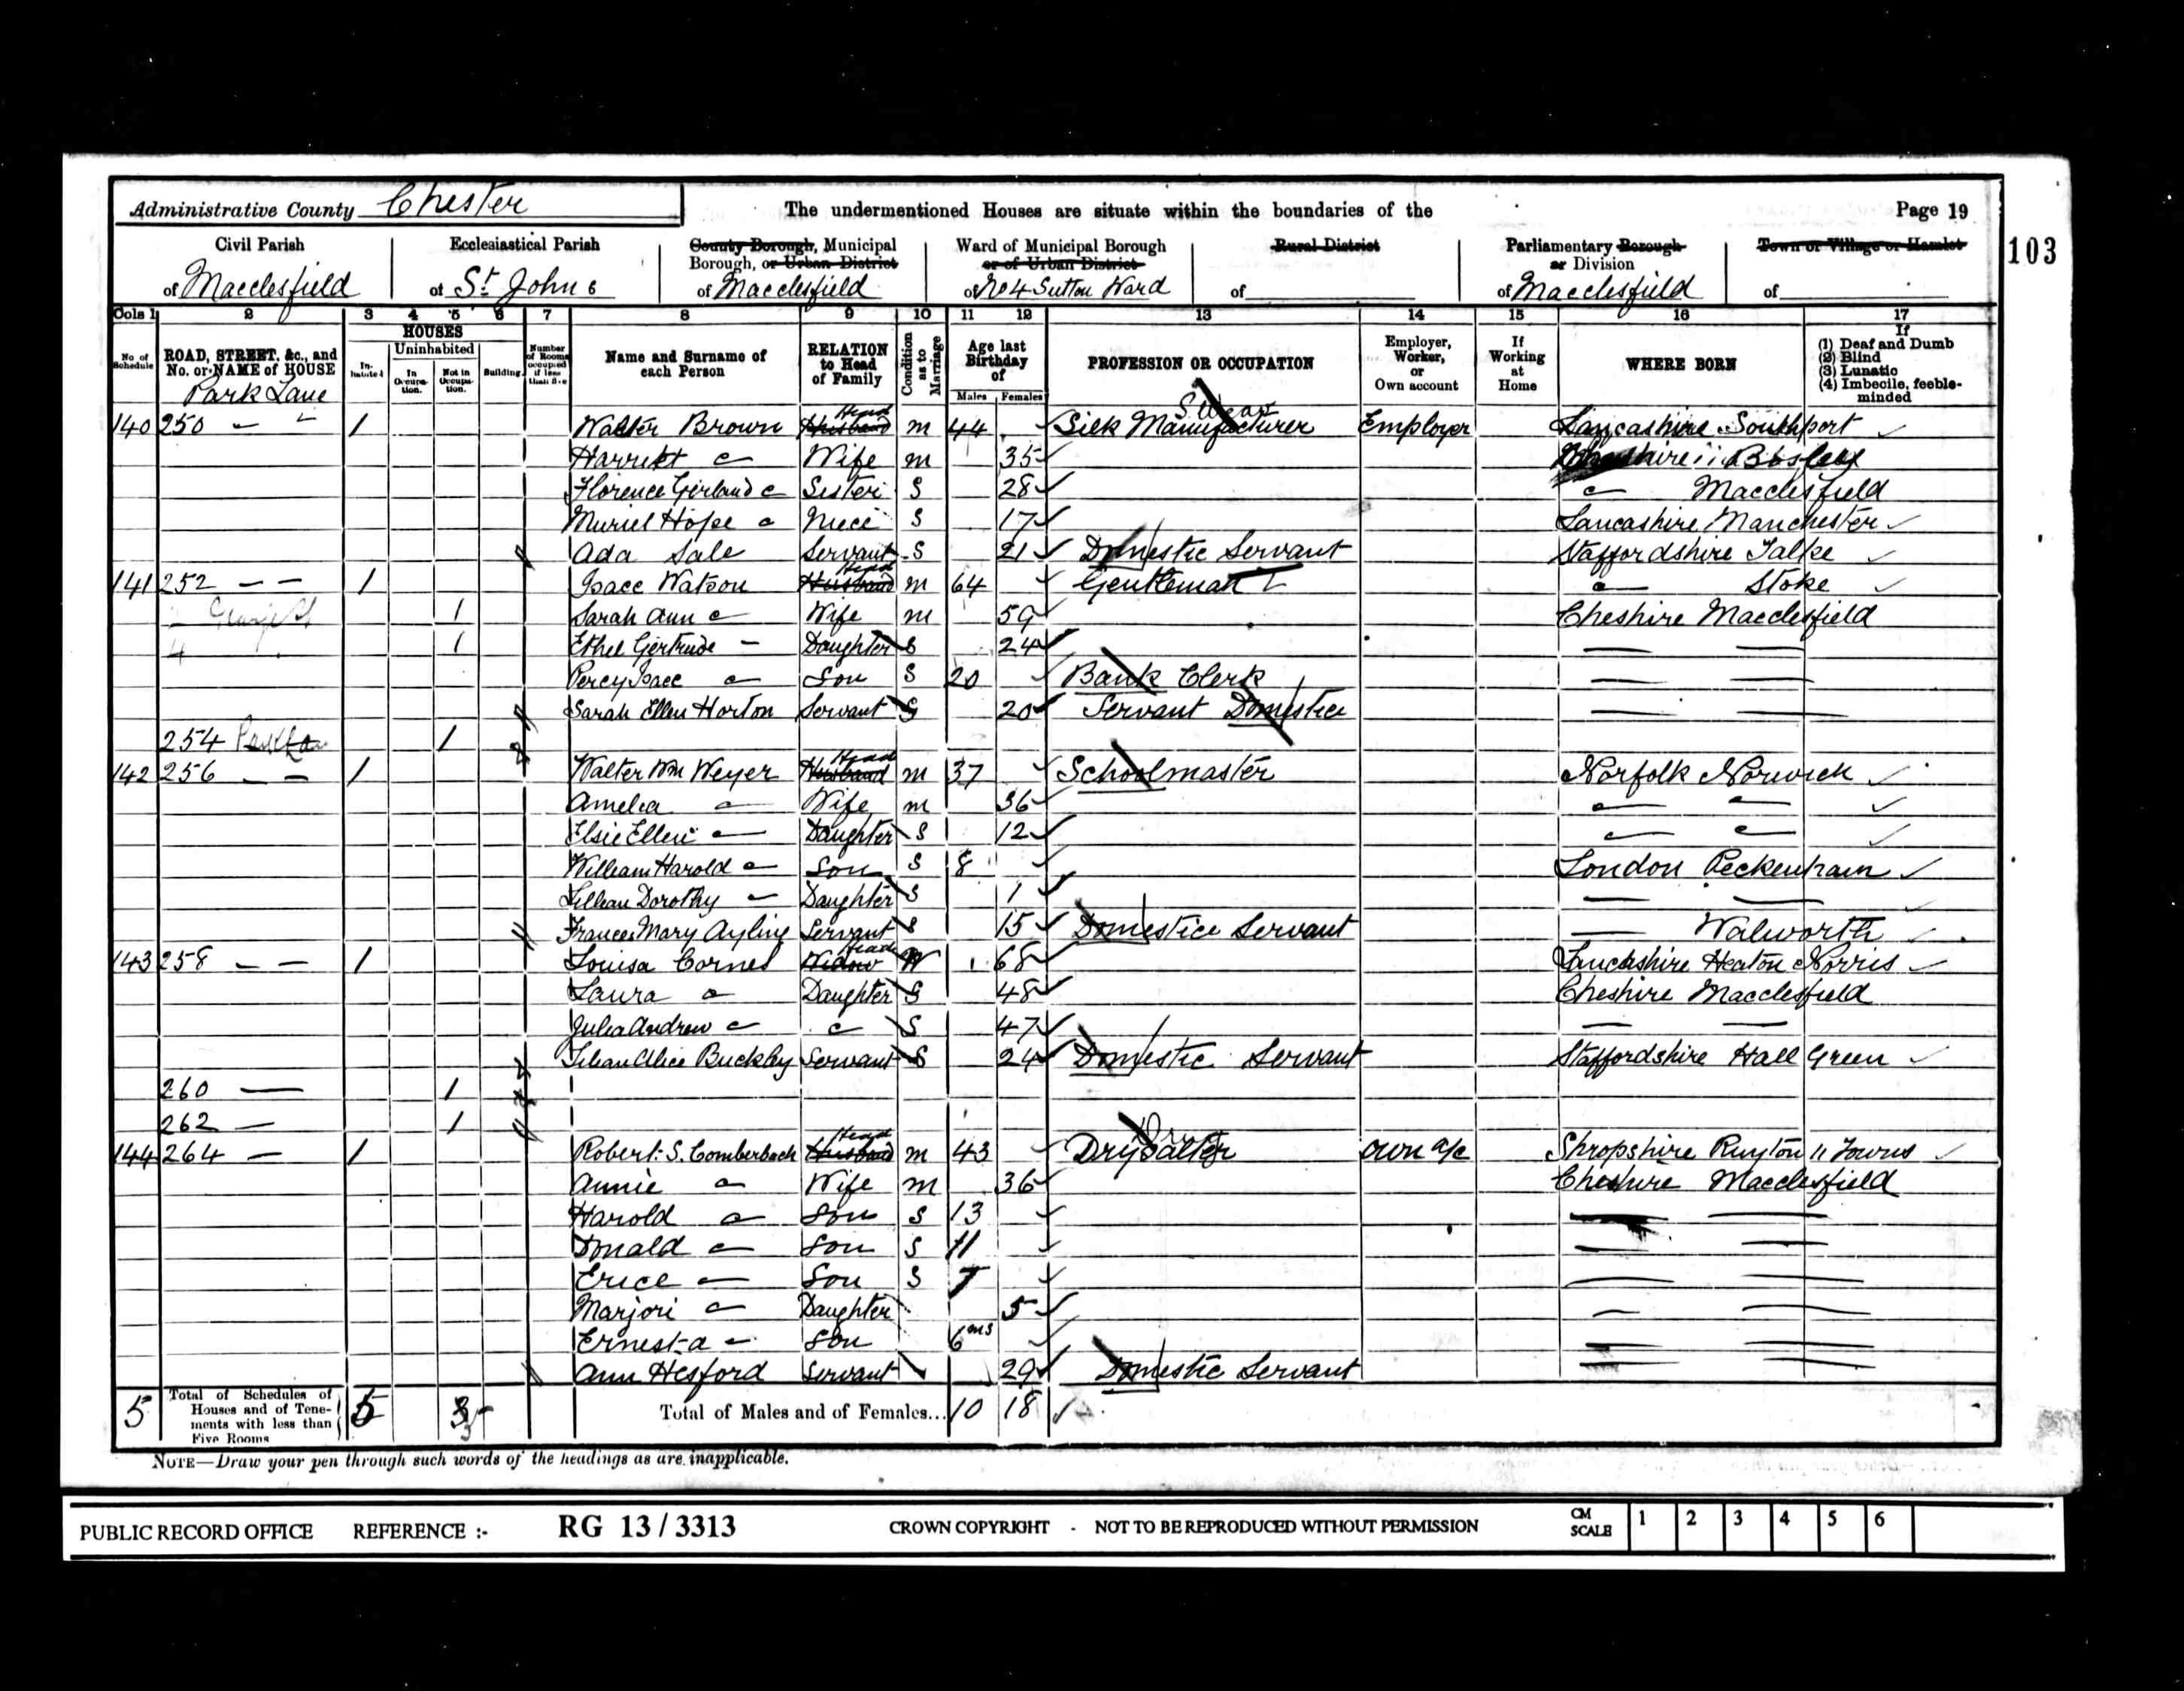 Administrative County Chester The undermentioned Houses are situate within the boundaries of the Page 19
103
Civil Parish Ecclesiastical Parish County Borough, Municipal Ward of Municipal Borough Rural District Parliamentary Borough Town or Village or Hamlet
Borough, or Urban District or of Urban District or Division
of Macclesfield of St Johns of Macclesfield of No 4 Sutton Ward of of Macclesfield of
Cols 1 2 3 4 5 6 7 8 9 10 11 12 13 14 15 16 17
No of Schedule ROAD, STREET, &c., and No. or NAME of HOUSE HOUSES Inhabited Uninhabited In Occupation. Not in Occupation. Building Number of Rooms occupied if less than five Name and Surname of each Person RELATION to Head of Family Condition as to Marriage Age last Birthday of Males Females PROFESSION OR OCCUPATION Employer, Worker, or Own account If Working at Home WHERE BORN If (1) Deaf and Dumb (2) Blind (3) Lunatic (4) Imbecile, feeble-minded
Park Lane
140 250 1 Walter Brown Husband Head m 44 Silk Manufacturer Employer Lancashire Southport
Harriet Wife m 35 Cheshire Bosley
Florence Sister S 28 Macclesfield
Muriel Hope Niece S 17 Lancashire Manchester
Ada Sale Servant S 21 Domestic Servant Staffordshire Talke
141 252 1 Isacc Watson Husband Head m 64 Gentleman Stoke
George St 1 Sarah Ann Wife m 59 Cheshire Macclesfield
4 1 Ethel Gertrude Daughter S 24
Percy Isacc Son S 20 Bank Clerk
Sarah Ellen Horton Servant S 20 Servant Domestice
254 Park Lane 1
142 256 1 Walter Wm Weyer Husband Head m 37 Schoolmaster Norfolk Norwich
Amelia Wife m 36
Elsie Ellen Daughter S 12
William Harold Son S 8 London Peckenham
Lillian Dorothy Daughter S 1
Frances Mary Ayling Servant S 15 Domestice Servant Walworth
143 258 1 Louisa Cornes Widow Head W 68 Lancashire Heaton Norris
Laura Daughter S 48 Cheshire Macclesfield
Julia Andrew S 47
Lilian Alice Buckley Servant S 24 Domestic Servant Staffordshire Hall Green
260 1
262 1
144 264 1 Robert S. Comberbach Husband Head m 43 Drysalter own a/c Shropshire Ruyton 11 Towns
Annie Wife m 36 Cheshire Macclesfield
Harold Son S 13
Donald Son S 11
Erice Son S 7
Marjori Daughter 5
Ernest a Son 6 ms
Ann Hesford Servant 29 Domestic Servant
5 Total of Schedules of Houses and of Tenements with less than Five Rooms 5 3 Total of Males and of Females... 10 18
NOTE—Draw your pen through such words of the headings as are inapplicable.
PUBLIC RECORD OFFICE REFERENCE :- RG 13 / 3313 CROWN COPYRIGHT - NOT TO BE REPRODUCED WITHOUT PERMISSION CM SCALE 1 2 3 4 5 6